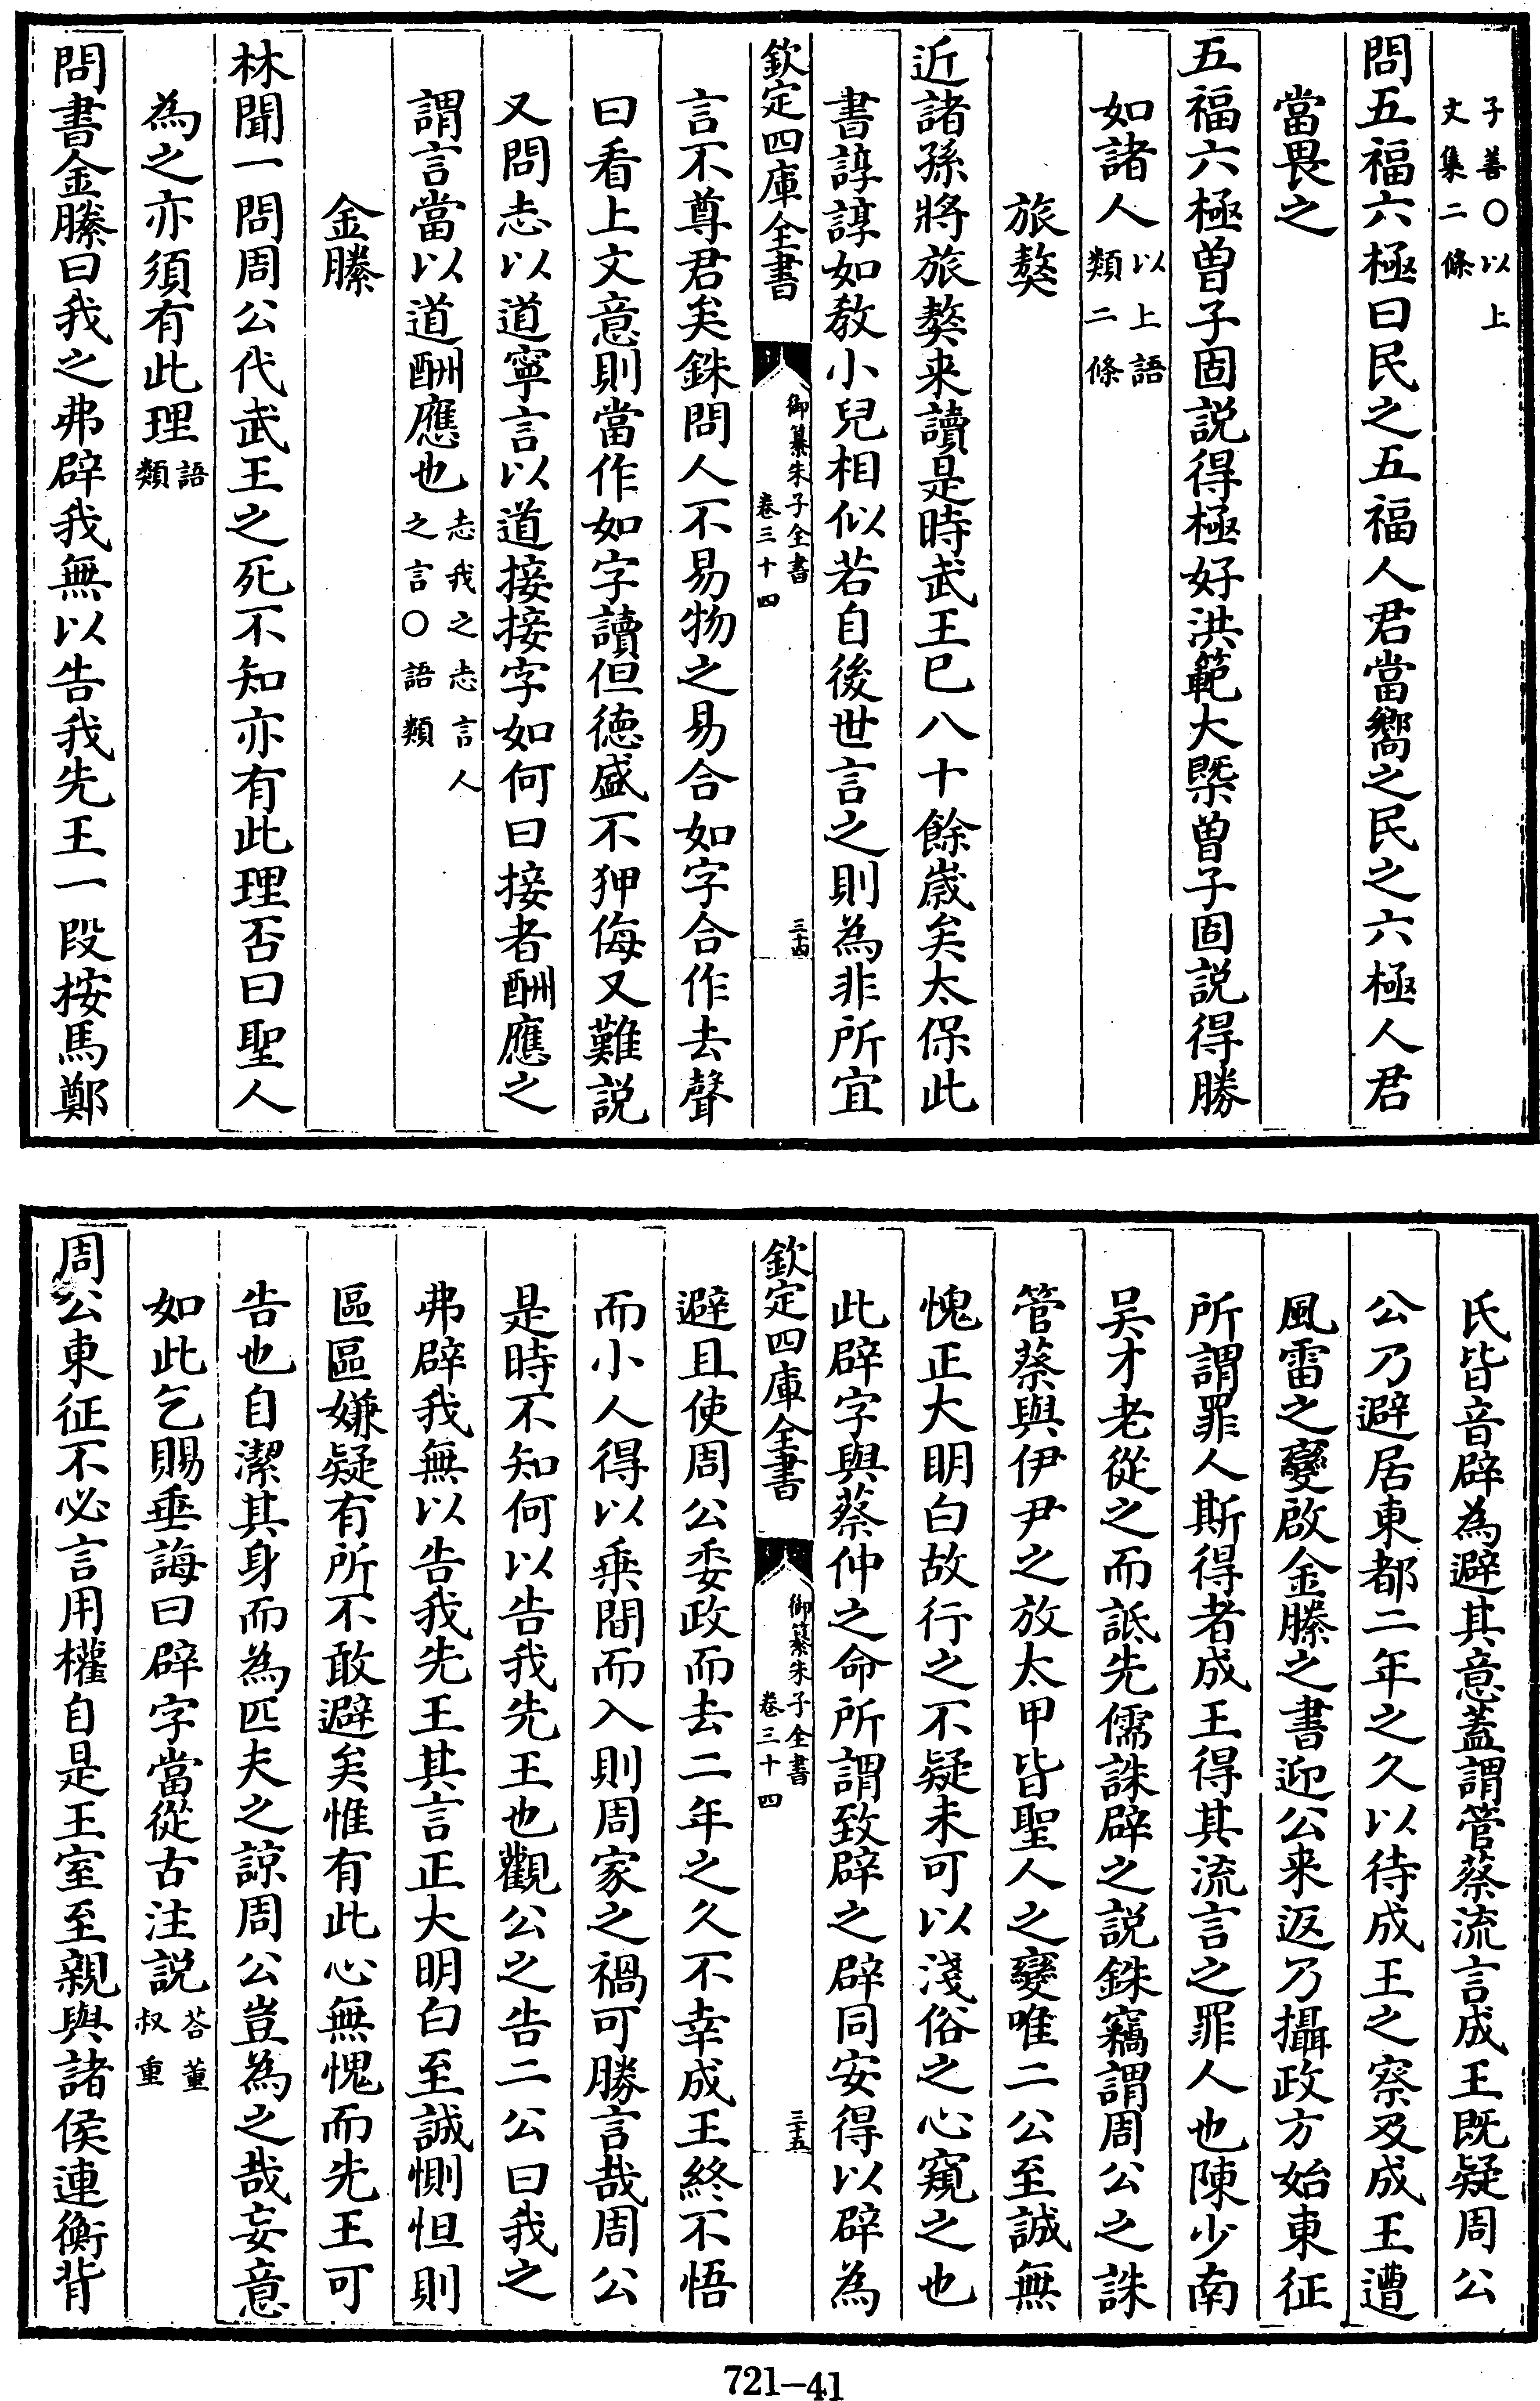 子善〇以上
文集二條
問五福六極曰民之五福人君當嚮之民之六極人君
當畏之
五福六極曾子固説得極好洪範大槩曾子固説得勝
如諸人以上語
類二條
旅獒
近諸孫將旅獒来讀是時武王已八十餘歲矣太保此
書諄諄如教小兒相似若自後世言之則為非所宜
欽定四庫全書
御纂朱子全書
卷三十四
三十四
言不尊君矣銖問人不易物之易合如字合作去聲
曰看上文意則當作如字讀但德盛不狎侮又難説
又問志以道寧言以道接接字如何曰接者酬應之
謂言當以道酬應也志我之志言人
之言〇語類
金縢
林聞一問周公代武王之死不知亦有此理否曰聖人
為之亦須有此理語
類
問書金縢曰我之弗辟我無以告我先王一段按馬鄭
氏皆音辟為避其意蓋謂管蔡流言成王既疑周公
公乃避居東都二年之久以待成王之察及成王遭
風雷之變啟金縢之書迎公来返乃攝政方始東征
所謂罪人斯得者成王得其流言之罪人也陳少南
吴才老從之而詆先儒誅辟之説銖竊謂周公之誅
管蔡與伊尹之放太甲皆聖人之變唯二公至誠無
愧正大明白故行之不疑未可以淺俗之心窺之也
此辟字與蔡仲之命所謂致辟之辟同安得以辟為
欽定四庫全書
御纂朱子全書
卷三十四
三十五
避且使周公委政而去二年之久不幸成王終不悟
而小人得以乗間而入則周家之禍可勝言哉周公
是時不知何以告我先王也觀公之告二公曰我之
弗辟我無以告我先王其言正大明白至誠惻怛則
區區嫌疑有所不敢避矣惟有此心無愧而先王可
告也自潔其身而為匹夫之諒周公豈為之哉妄意
如此乞賜垂誨曰辟字當從古注説荅董
叔重
周公東征不必言用權自是王室至親與諸侯連衡背
721-41